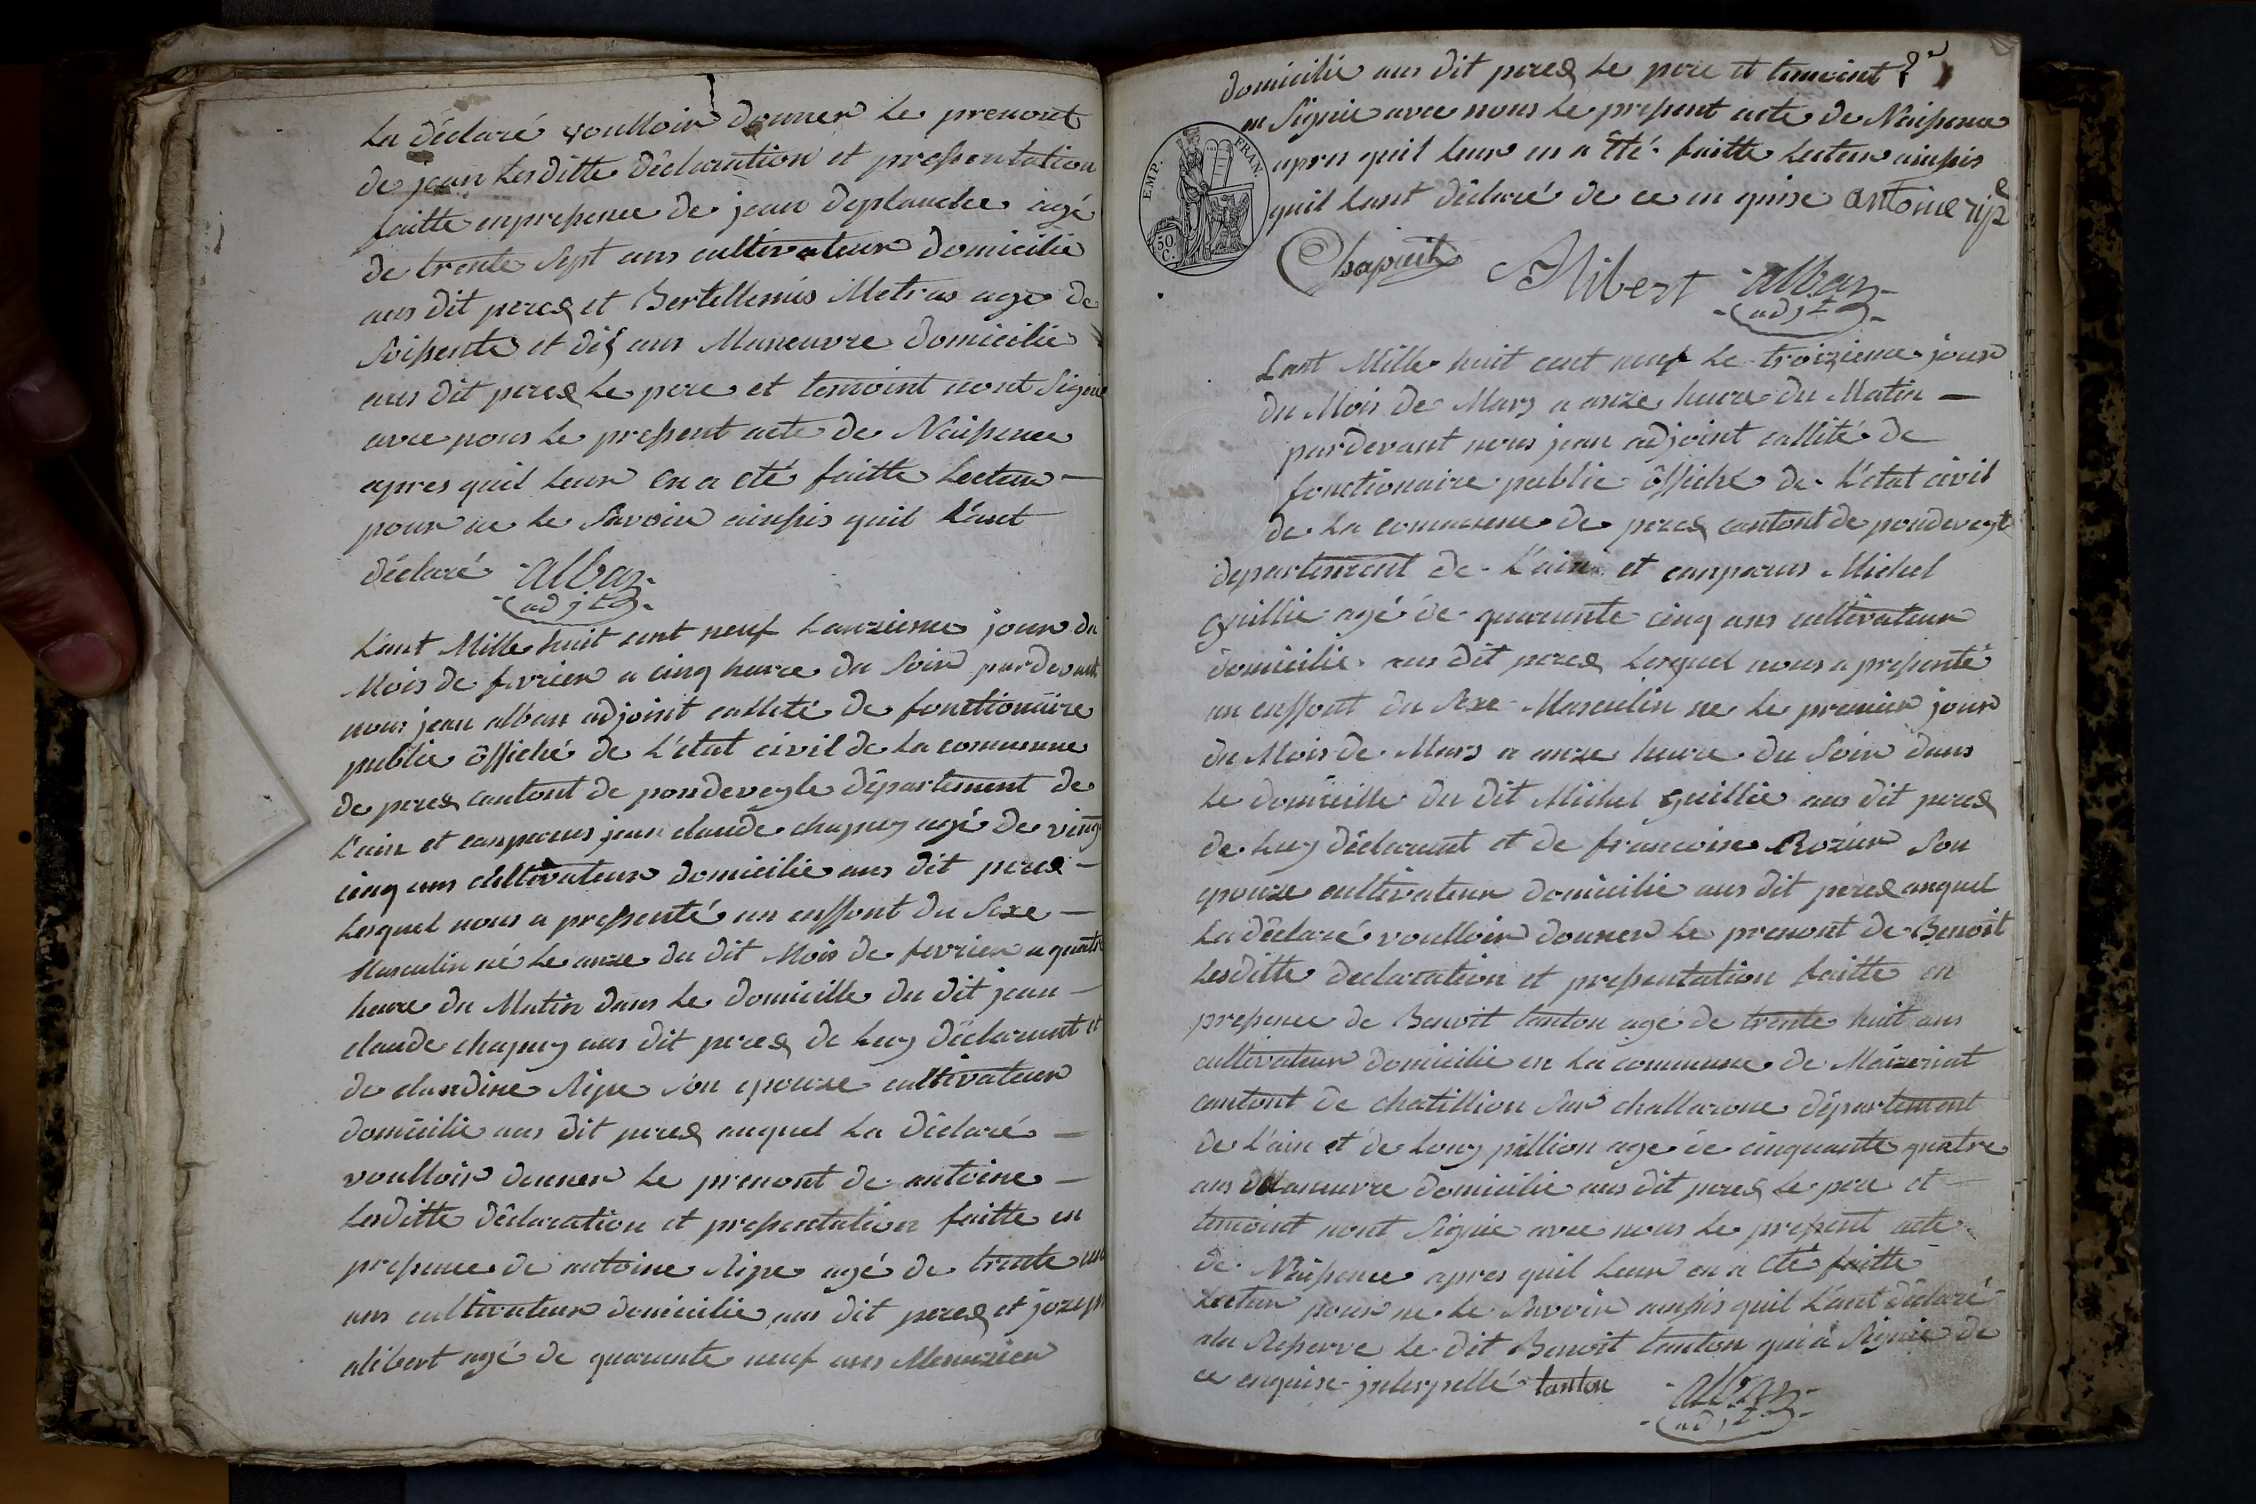 La déclaré voulloir donner Le prenont
de jean Lesditte déclaration et pressentation
faitte enpressence de jean desplanche agé
de trente Sept ans cultivateur domicilié
aus dit perex et Bertellemis Metras agé de
Soissente et dix ans Maneuvre domicilié
aus dit perex Le pere et temoint nont Signié
avec nous Le pressent acte de Naissence
apres quil Leur en a été faitte Lecteur —
pour ne Le Savoir ainssis quil L'ant
déclaré alban
adjt
L'ant Mille huit cent neuf L'anzieme jour du
Mois de fevrier a cinq heure du Soir pardevant
nous jean alban adjoint callité de fonctionaire
public ôffiché de L'etat civil de La commune
de perex cantont de pondeveyle département de
L'ain et canparus jean claude chapuy agé de vingt
cinq ans cultivateur domicilié aus dit perex —
Lesquel nous a pressenté un enffont du Sexe —
Masculin né Le anze du dit Mois de fevrier a quatre
heure du Matin dans Le domicille du dit jean —
claude chapuy aus dit perex de Luy déclarant et
de claudine Ripe Son epouze cultivateur
domicilié aus dit perex auquel La déclaré —
voulloir donner Le prenont de antoine —
Lesditte déclaration et pressentation faitte en
pressence de antoine Ripe agé de trente un
ans cultivateur domicilié aus dit perex et jozeph
alibert agé de quarante neuf ans Menuzier
domicilié aus dit perex Le pere et temoint
on Signié avec nous Le pressent acte de Naissence
apres quil Leur en a été faitte Lecteur ainssis
quil L'ant déclaré de ce en quise antoine ripe
EMP. FRAN.
50 C.
Chapuit Alibert alban
adjt
L'ant Mille huit cent neuf Le troizieme jour
du Mois de Mars a anze heure du Matin —
pardevant nous jean adjoint callité de
fonctionaire public ôffiché de L'etat civil
de La commune de perex cantont de pondeveyle
departement de L'ain et canparus Michel
guillié agé de quarante cinq ans cultivateur
domicilié aus dit perex Lesquel nous a pressenté
un enffont du Sexe Masculin né Le premier jour
du Mois de Mars a anze heure du Soir dans
Le domicille du dit Michel guillié aus dit perex
de Luy déclarant et de francoise Rozier Son
epouze cultivateur domicilié aus dit perex auquel
La déclaré voulloir donner Le prenont de Benoit
Lesditte declaration et pressentation faitte en
pressence de Benoit tanton agé de trente huit ans
cultivateur domicilié en La commune de Maizeriat
cantont de chatillion Sur challarone département
de L'ain et de Louy pillion agé de cinquante quatre
ans Maneuvre domicilié aus dit perex Le pere et —
temoint nont Signié avec nous Le pressent acte
de Naissence apres quil Leur en a été faitte
Lecteur pour ne Le Savoir ainssis quil L'ant déclaré
ala Reserve Le dit Benoit tanton qui a Signié de
ce enquise jnterpellé tanton alban
adjt